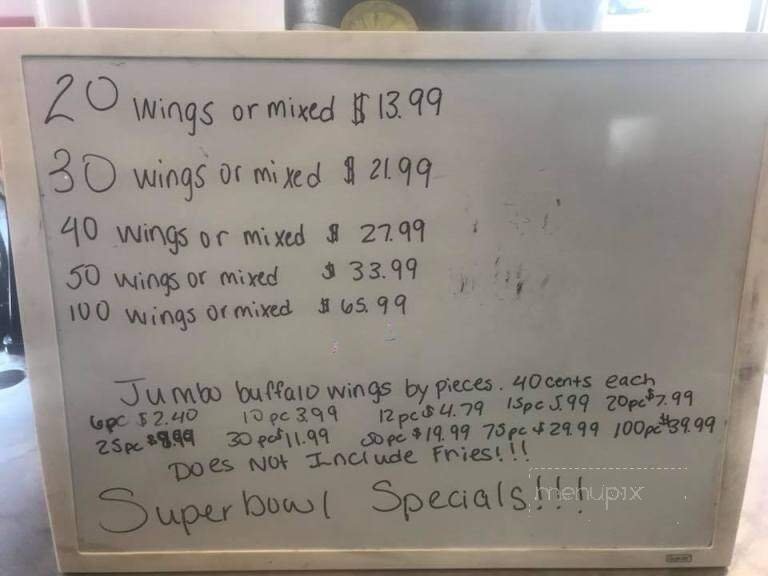 20 wings or mixed $13.99
30 wings or mixed $21.99
40 wings or mixed $27.99
50 wings or mixed $33.99
100 wings or mixed $65.99
Jumbo buffalo wings by pieces. 40 cents each
6pc $2.40 10 pc 3.99 12 pc $4.79 15pc 5.99 20pc $7.99
25pc $8.99 30 pc $11.99 50pc $19.99 75pc $29.99 100pc $39.99
Does Not Include Fries!!!
Superbowl Specials!!!
menupix